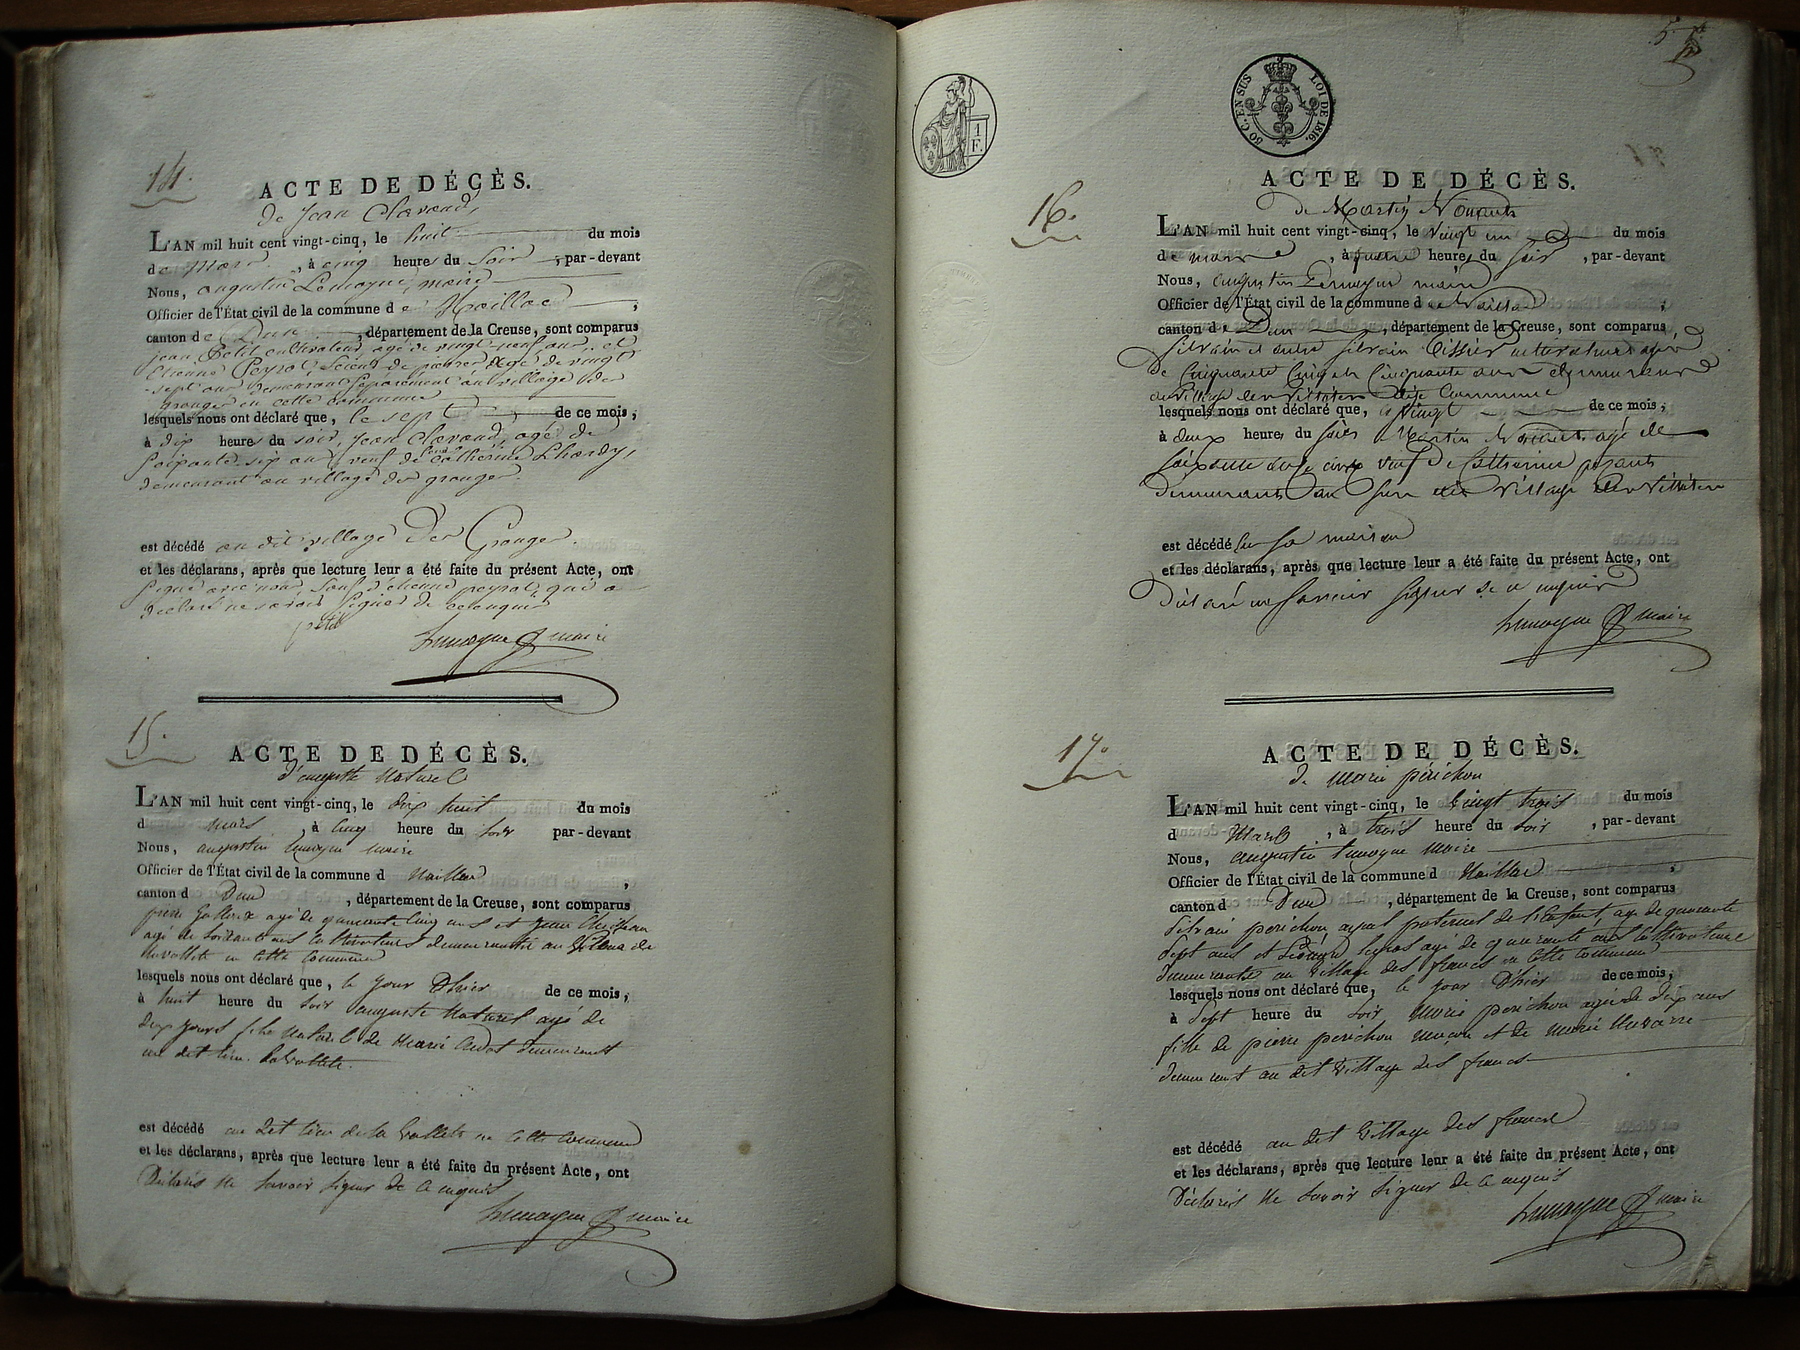 14.
ACTE DE DÉCÈS.
de Jean Clavaud,
L'AN mil huit cent vingt-cinq, le huit du mois
de Mars, à cinq heures du Soir, par-devant
Nous, augustin Lemoyne, maire
Officier de l'État civil de la commune de Naillac,
canton de Dun, département de la Creuse, sont comparus
jean Petit cultivateur, agé de vingt neuf ans, et
Etienne Peyrot, Scieur de pierres agé de vingt
-sept ans demeurant Séparément au village des
granges en cette commune
lesquels nous ont déclaré que, le sept de ce mois,
à dix heures du soir, Jean Clavaud, agé de
Soixante-six ans, veuf de Catherine Lhardy,
demeurant au village des granges.
est décédé au dit village Des Granges.
et les déclarans, après que lecture leur a été faite du présent Acte, ont
Signé avec nous, sauf d'etienne peyrot, qui a
déclaré ne savoir Signer de ce enquis
petit
Lemoyne maire
15.
ACTE DE DÉCÈS.
d'auguste Naturel
L'AN mil huit cent vingt-cinq, le dix huit du mois
d mars à cinq heure du soir par-devant
Nous, augustin lemoyne maire
Officier de l'État civil de la commune d Naillac,
canton d Dun, département de la Creuse, sont comparus
pierre agé de quarante cinq ans et jean
agé de soixante ans cultivateurs demeurants au de
en cette commune
lesquels nous ont déclaré que, le jour d'hier de ce mois,
à huit heure du soir auguste Naturel agé de
dix jours fils Naturel de Marie demeurant
au dit lieu
est décédé au dit lieu de la en cette commune
et les déclarans, après que lecture leur a été faite du présent Acte, ont
Déclaré ne savoir signer de ce enquis
Lemoyne maire
50 C. EN SUS LOI DE 1816.
1 F.
16.
ACTE DE DÉCÈS.
de Martin
L'AN mil huit cent vingt-cinq, le vingt un du mois
de mars, à quatre heure du soir, par-devant
Nous, augustin Lemoyne maire
Officier de l'État civil de la commune de Naillac,
canton de Dun, département de la Creuse, sont comparus
silvain et autre silvain tissier cultivateurs agés
de cinquante cinq et cinquante ans demeurant
au village cette commune
lesquels nous ont déclaré que, le vingt de ce mois,
à deux heure du soir Martin agé de
soixante cinq veuf de Catherine
demeurant au village
est décédé en sa maison
et les déclarans, après que lecture leur a été faite du présent Acte, ont
Déclaré ne savoir signer de ce enquis
Lemoyne maire
17.
ACTE DE DÉCÈS.
de Marie périchon
L'AN mil huit cent vingt-cinq, le vingt trois du mois
d Mars, à trois heure du soir, par-devant
Nous, augustin lemoyne maire
Officier de l'État civil de la commune d Naillac,
canton d Dun, département de la Creuse, sont comparus
silvain périchon ayeul paternel de l'enfant, agé de quarante
sept ans et agé de quarante ans cultivateurs
demeurants au village des francs en cette commune
lesquels nous ont déclaré que, le jour d'hier de ce mois,
à sept heure du soir Marie périchon agée de dix ans
fille de pierre périchon maçon et de Marie
demeurant au dit village des francs
est décédé au dit village des francs
et les déclarans, après que lecture leur a été faite du présent Acte, ont
Déclaré ne savoir signer de ce enquis
Lemoyne maire